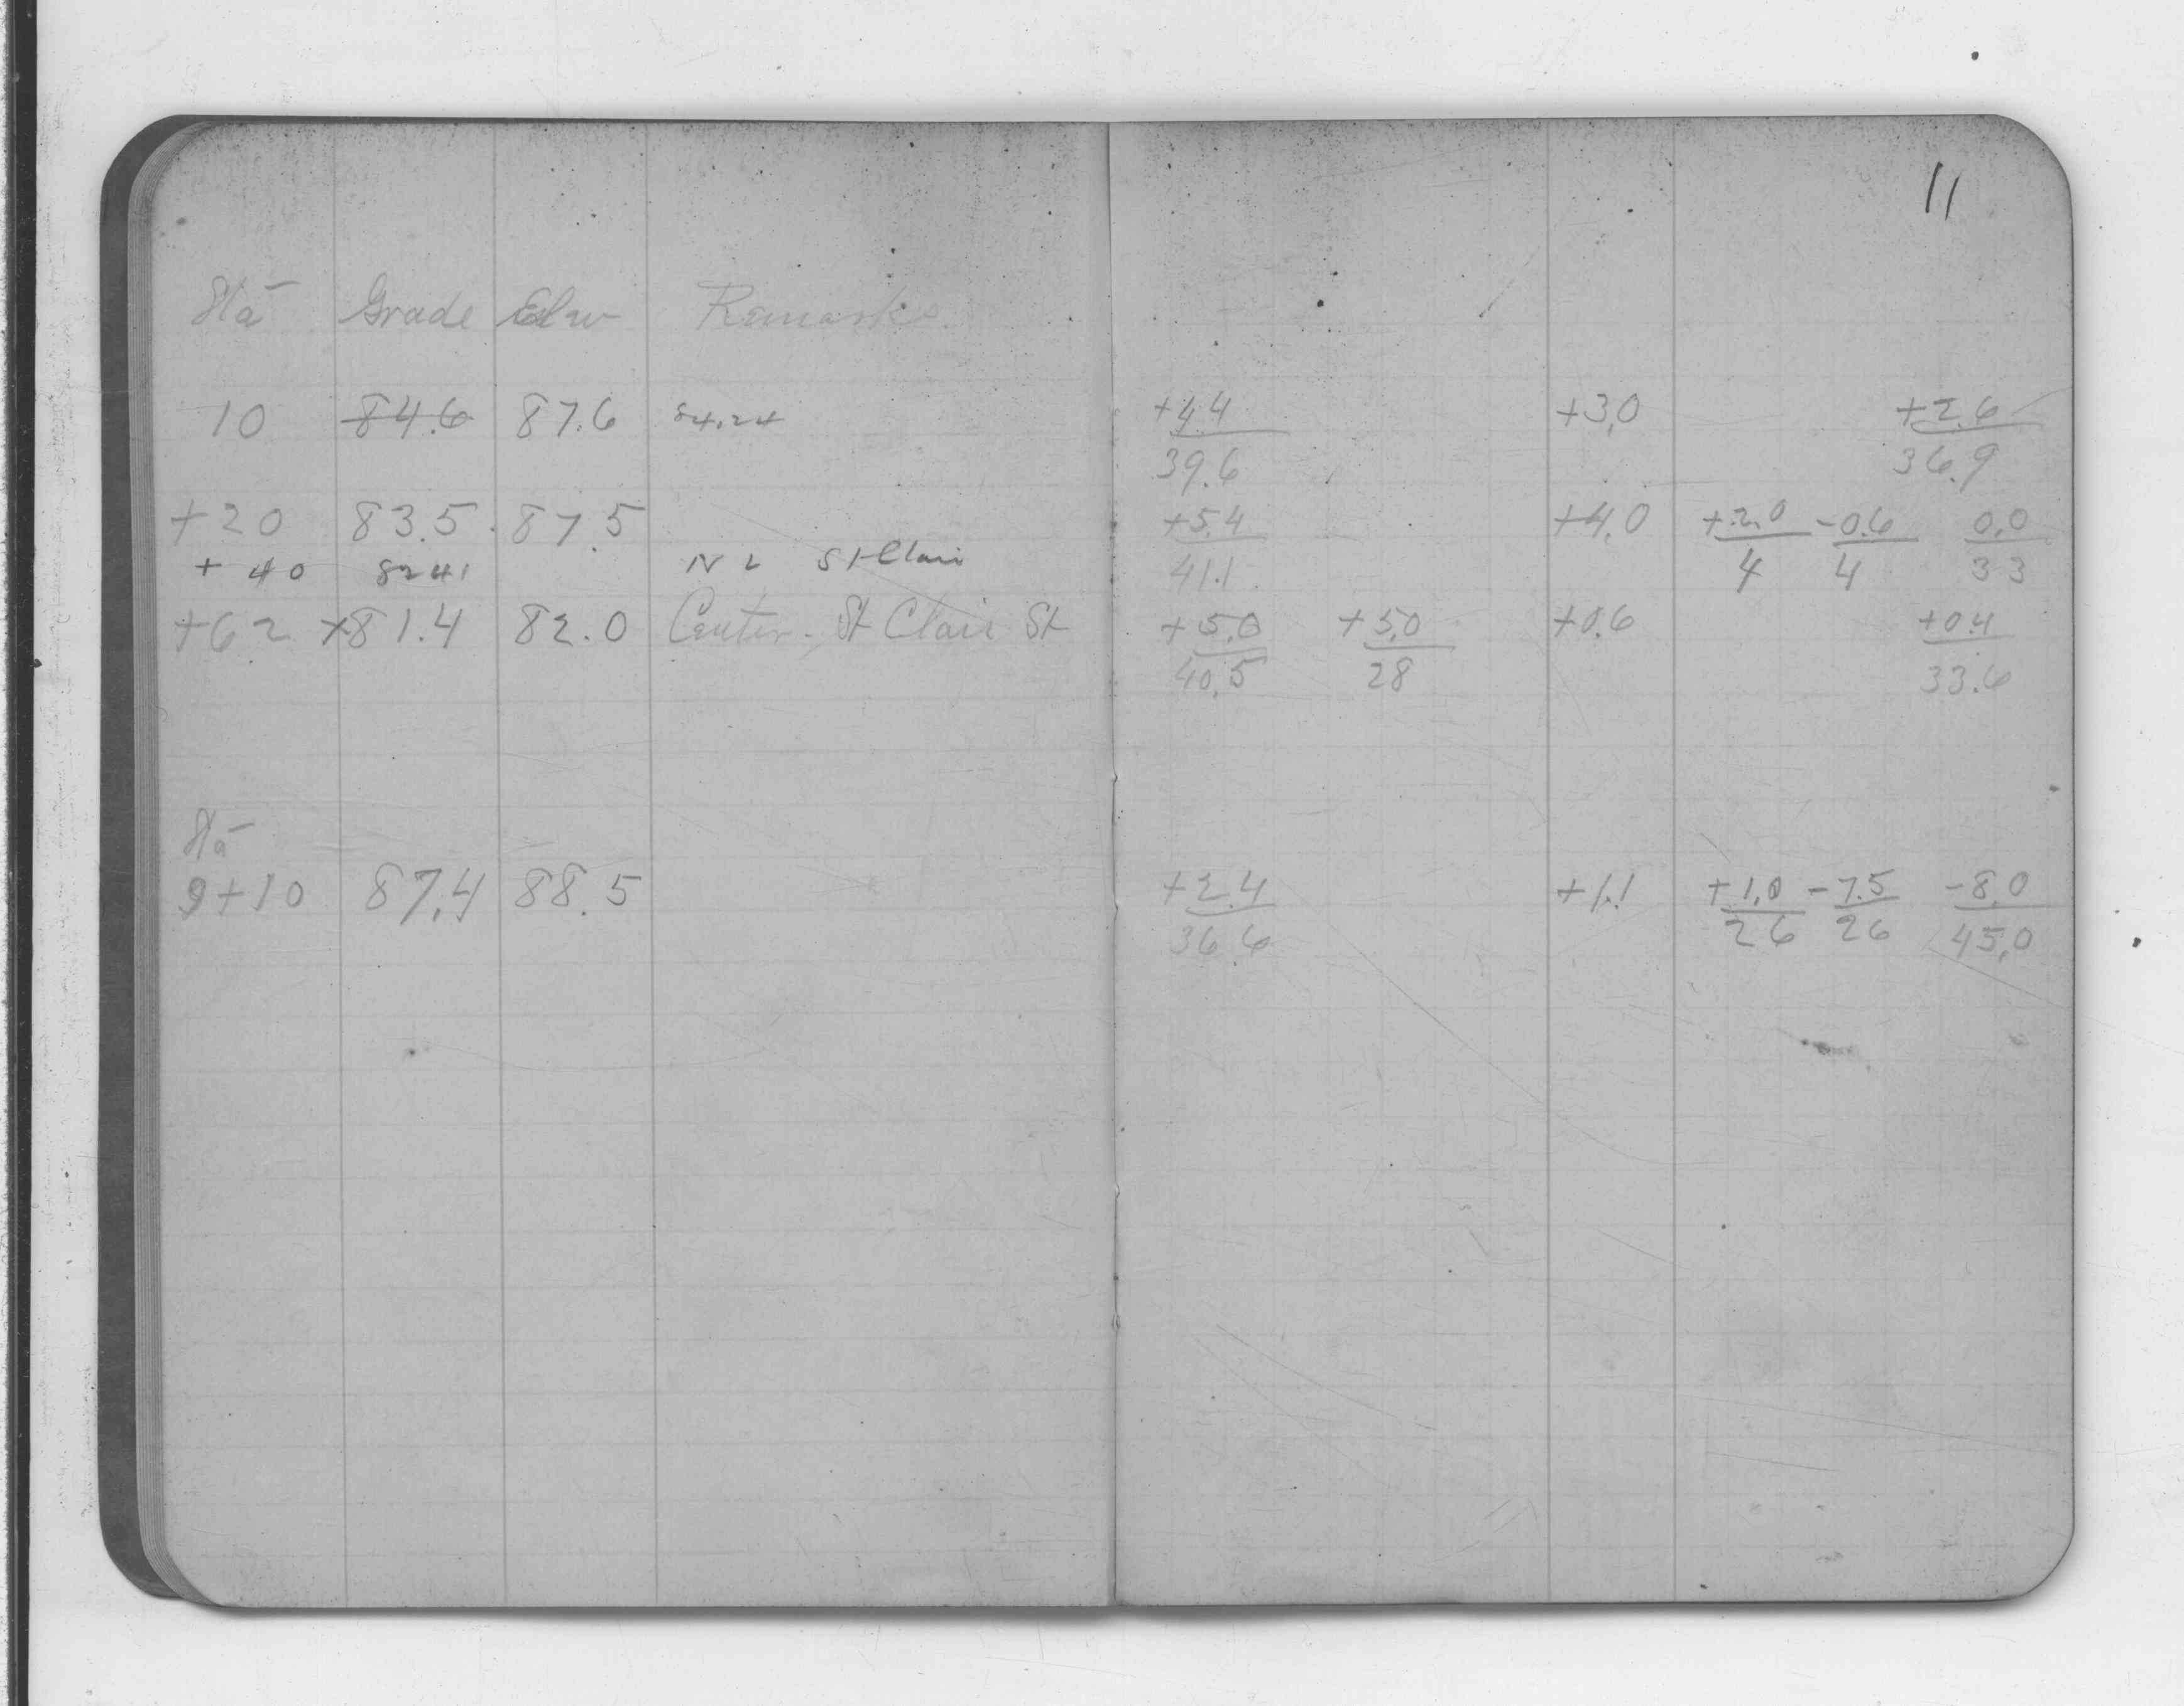 11
Sta Grade Elev Remarks
10 84.6 87.6 84.24 +4.4 +3.0 +2.6
39.6 36.9
+20 83.5 87.5 +5.4 +4.0 +2.0 -0.6 0.0
+40 8241 N L St Clair 41.1 4 4 33
+62 x81.4 82.0 Center St Clair St +5.0 +5.0 +0.6 +0.4
40.5 28 33.6
Sta
9+10 87.4 88.5 +2.4 +1.1 +1.0 -7.5 -8.0
36.6 26 26 45.0